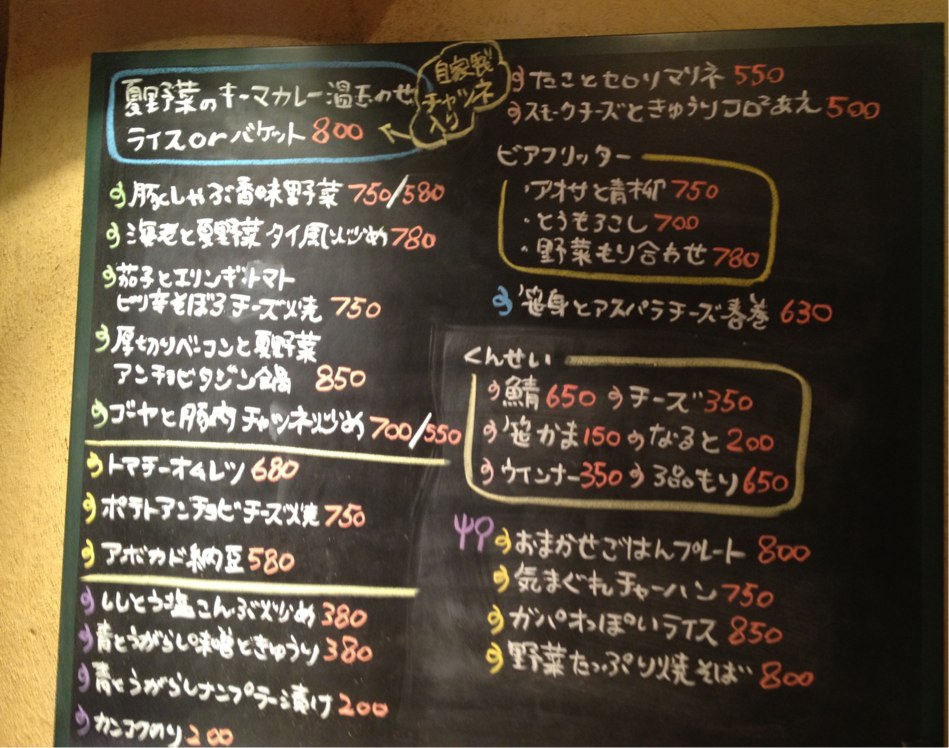 夏野菜のキーマカレー温玉のせ
ライスorバケット 800
自家製
チャツネ
入り
豚しゃぶ香味野菜 750/580
海老と夏野菜タイ風炒め 780
茄子とエリンギ・トマト
ピリ辛そぼろチーズ焼 750
厚切りベーコンと夏野菜
アンチョビタジン鍋 850
ゴーヤと豚肉チャツネ炒め 700/550
トマチーオムレツ 680
ポテトアンチョビチーズ焼 750
アボカド納豆 580
ししとう塩こんぶ炒め 380
青とうがらし味噌ときゅうり 380
青とうがらしナンプラー漬け 200
カンコクのり 200
たことセロリマリネ 550
スモークチーズときゅうりコロコロあえ 500
ビアフリッター
・アオサと青柳 750
・とうもろこし 700
・野菜もり合わせ 780
笹身とアスパラチーズ春巻 630
くんせい
鯖 650 チーズ 350
笹かま 150 なると 200
ウインナー 350 3品もり 650
おまかせごはんプレート 800
気まぐれチャーハン 750
ガパオっぽいライス 850
野菜たっぷり焼そば 800